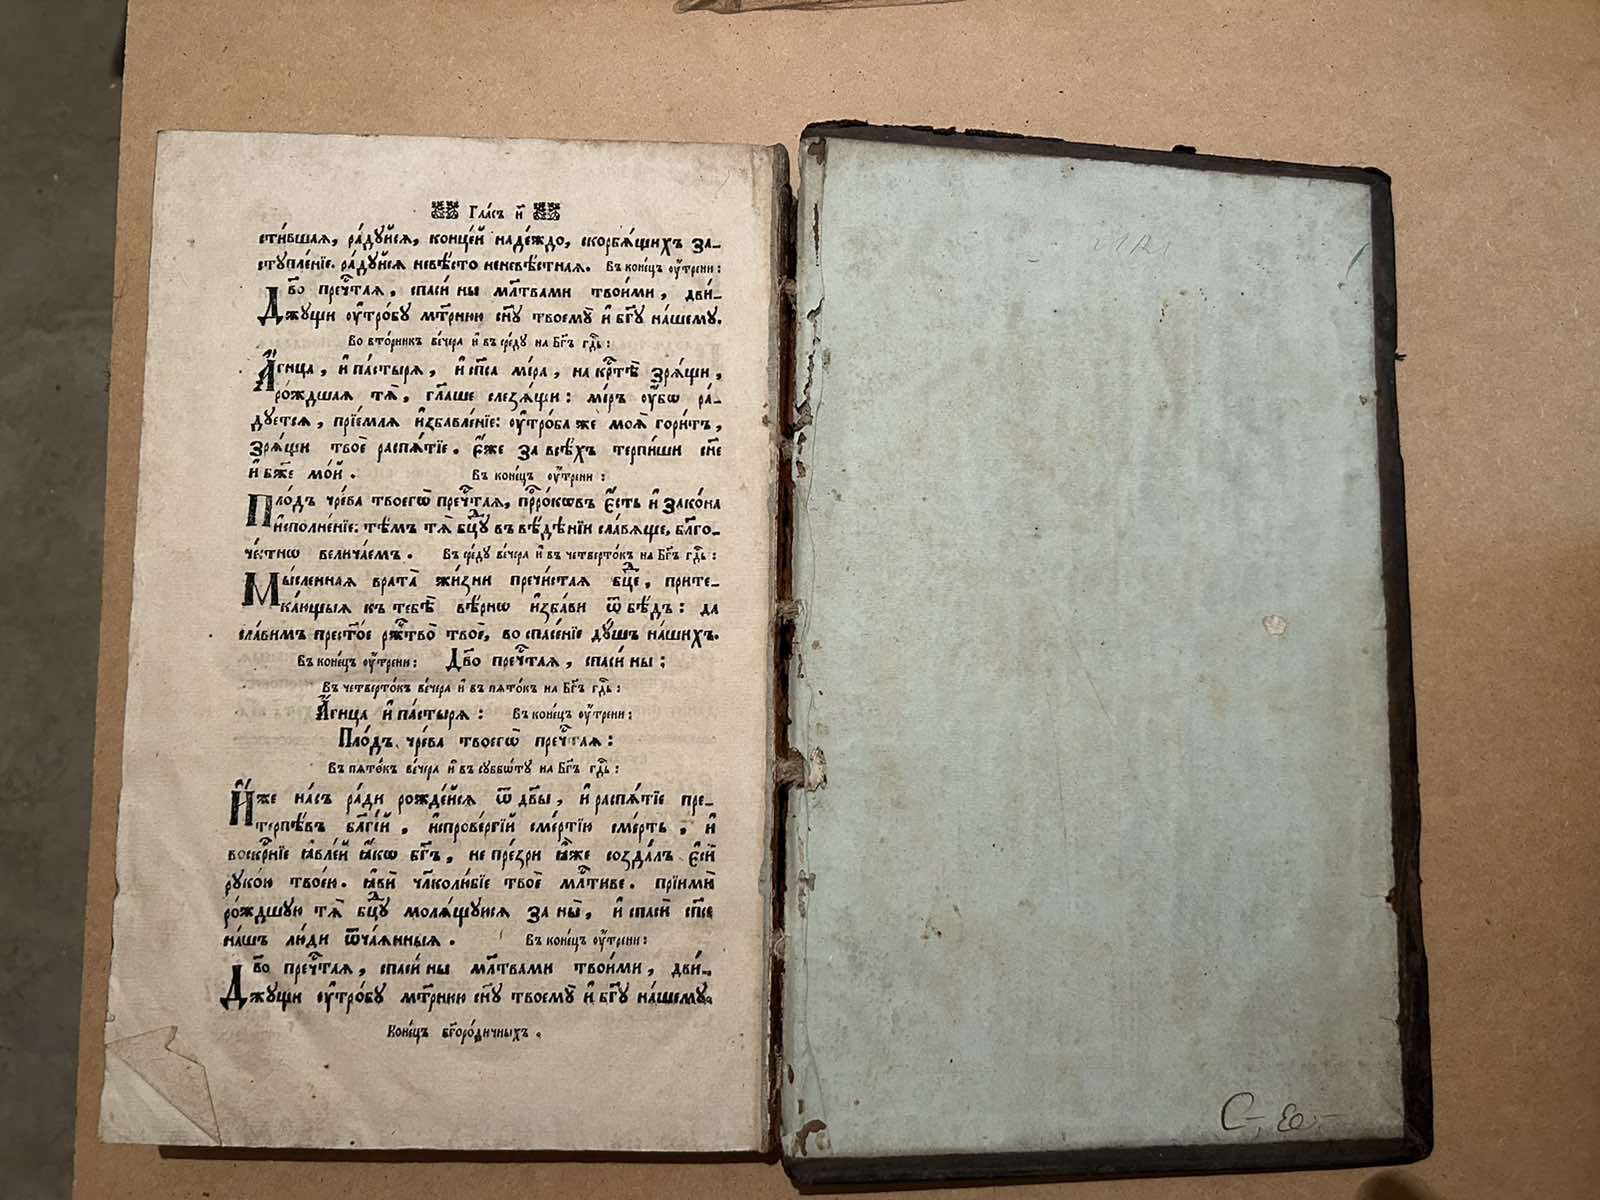 Гла́съ и҃
сти́вшая, ра́дꙋйся, конце́й наде́ждо, скорбѧ́щихъ за-
стꙋпле́нїе. ра́дꙋйсѧ невѣ́сто неневѣ́стнаѧ. Въ коне́цъ ѹ҆́трени:
Дв҃о преч҇таѧ, спаси́ ны мл҃твами твои́ми, дви́-
жꙋщи ѹ҆тро́бꙋ мт҃рнюю сн҃ꙋ твоемꙋ̀ и҆ бг҃ꙋ на́шемꙋ.
Во вто́рникъ ве́чера и҆ въ сре́дꙋ на Бг҃ъ гд҇ь:
А҆́гница, и҆ па́стырѧ, и҆ сп҃са ми́ра, на кр҇тѣ̀ зрѧ́щи,
ро́ждшая тѧ̀, гл҃аше слезѧ́щи: ми́ръ ѹ҆́бѡ ра́-
дꙋется, прїе́млѧ и҆збавле́нїе: ѹ҆тро́ба же моѧ̀ гори́тъ,
зрѧ́щи твоѐ распѧ́тїе. є҆́же за всѣ́хъ терпи́ши сн҃е
и҆ бж҃е мо́й. Въ коне́цъ ѹ҆́трени:
Пло́дъ чре́ва твоегѡ̀ преч҇таѧ, прⷪ҇ро́кѡвъ є҆́сть и҆ зако́на
и҆сполне́нїе: тѣ́мъ тѧ̀ бцⷣꙋ въ вѣ́дѣнїи сла́вѧще, бл҃го-
че́стнѡ велича́емъ. Въ сре́дꙋ ве́чера и҆ въ четверто́къ на Бг҃ъ гд҇ь:
Мы́сленнаѧ врата̀ жи́зни пречи́стаѧ бцⷣе, прите-
ка́ющыѧ къ тебѣ̀ вѣ́рнѡ и҆зба́ви ѿ бѣ́дъ: да
сла́вимъ прест҃о́е рж҇тво̀ твоѐ, во спасе́нїе дꙋ́шъ на́шихъ.
Въ коне́цъ ѹ҆́трени: Дв҃о преч҇таѧ, спаси́ ны:
Въ четверто́къ ве́чера и҆ въ пѧто́къ на Бг҃ъ гд҇ь:
А҆́гница и҆ па́стырѧ: Въ коне́цъ ѹ҆́трени:
Пло́дъ чре́ва твоегѡ̀ преч҇таѧ:
Въ пѧто́къ ве́чера и҆ въ сꙋббѡ́тꙋ на Бг҃ъ гд҇ь:
И҆́же на́съ ра́ди рожде́йсѧ ѿ дв҃ы, и҆ распѧ́тїе пре-
терпѣ́въ бл҃гі́й, и҆спрове́ргїй сме́ртїю сме́рть, и҆
воскр҇нїе ꙗ҆вле́й ꙗ҆́кѡ бг҃ъ, не пре́зри ꙗ҆̀же созда́лъ є҆сѝ
рꙋко́ю твое́ю. ꙗ҆вѝ чл҃колю́бїе твоѐ мл҇тиве. прїимѝ
ро́ждшꙋю тѧ̀ бцⷣꙋ молѧ́щꙋюсѧ за ны̀, и҆ спасѝ сп҃се
на́шъ лю́ди ѿча́ѧнныѧ. Въ коне́цъ ѹ҆́трени:
Дв҃о преч҇таѧ, спаси́ ны мл҃твами твои́ми, дви́-
жꙋщи ѹ҆тро́бꙋ мт҃рнюю сн҃ꙋ твоемꙋ̀ и҆ бг҃ꙋ на́шемꙋ.
Коне́цъ бг҃оро́дичныхъ.